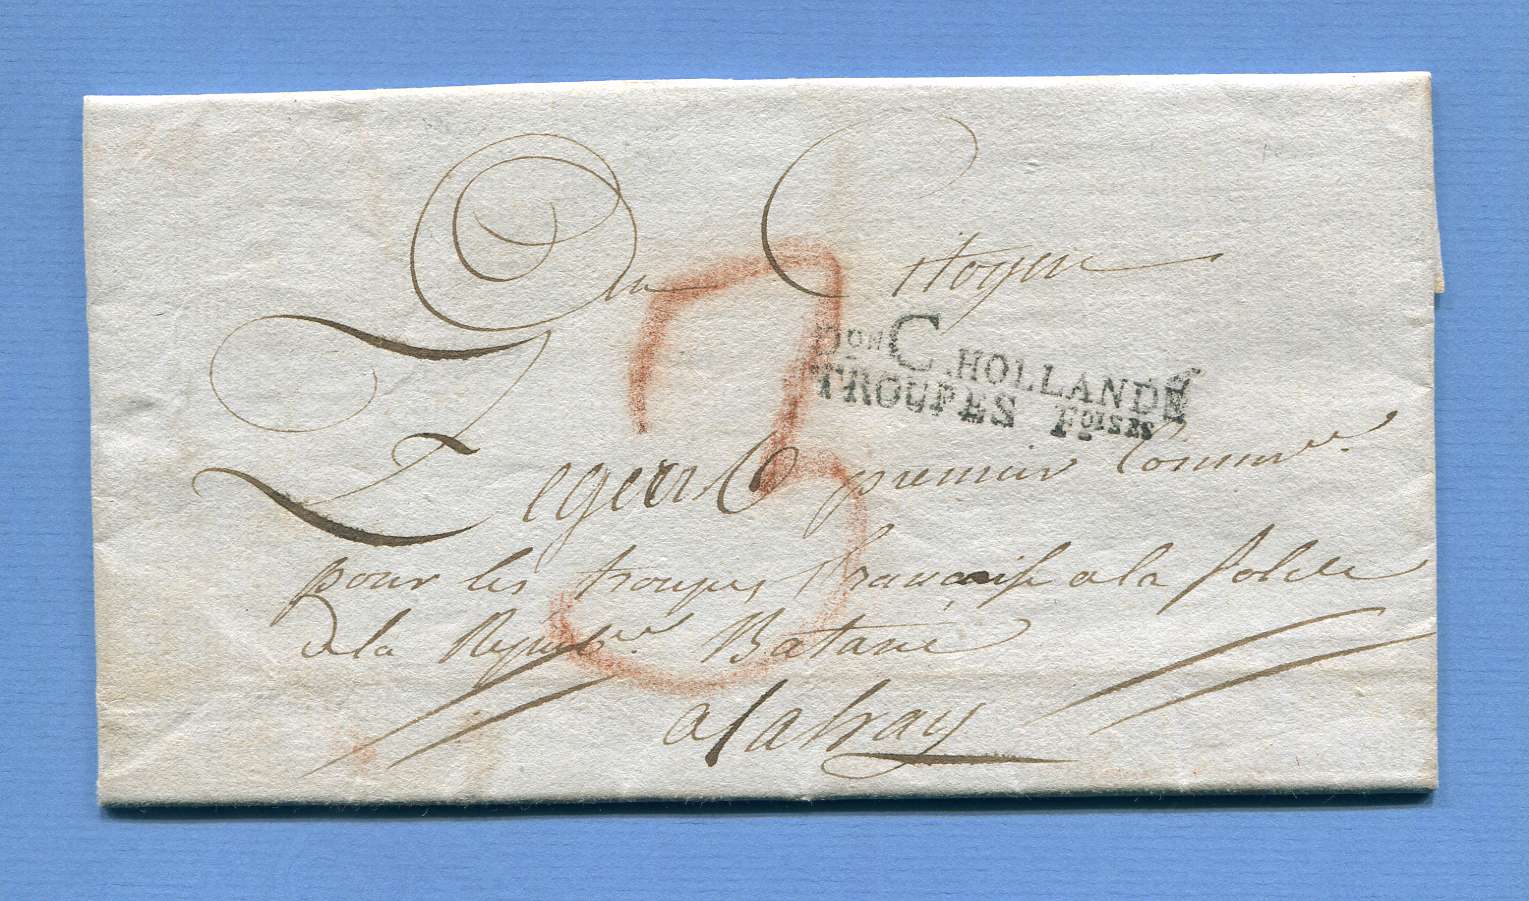 Au Citoyen
Don C. HOLLANDE
TROUPES Foises
Zegers premier Commre.
pour les troupes francaise a la solde
de la Repube. Batave
a la hay
3